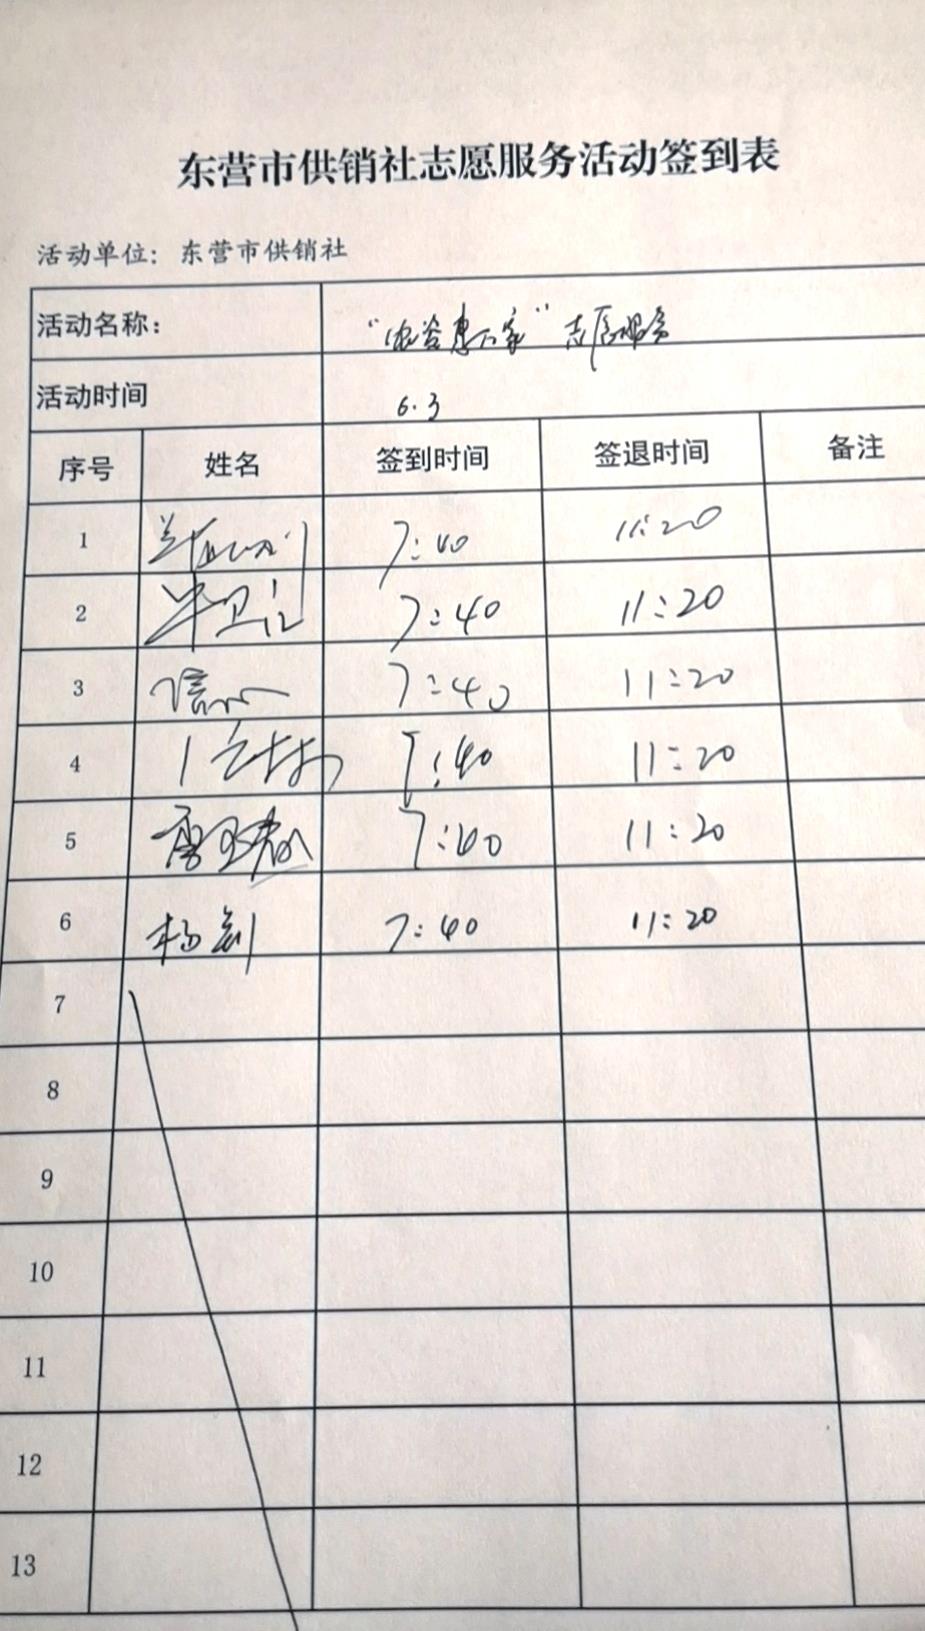 东营市供销社志愿服务活动签到表
活动单位：东营市供销社
活动名称： “农资惠万家”志愿服务
活动时间 6.3
序号 姓名 签到时间 签退时间 备注
1 7:40 11:20
2 7:40 11:20
3 7:40 11:20
4 7:40 11:20
5 7:40 11:20
6 杨剑 7:40 11:20
7
8
9
10
11
12
13